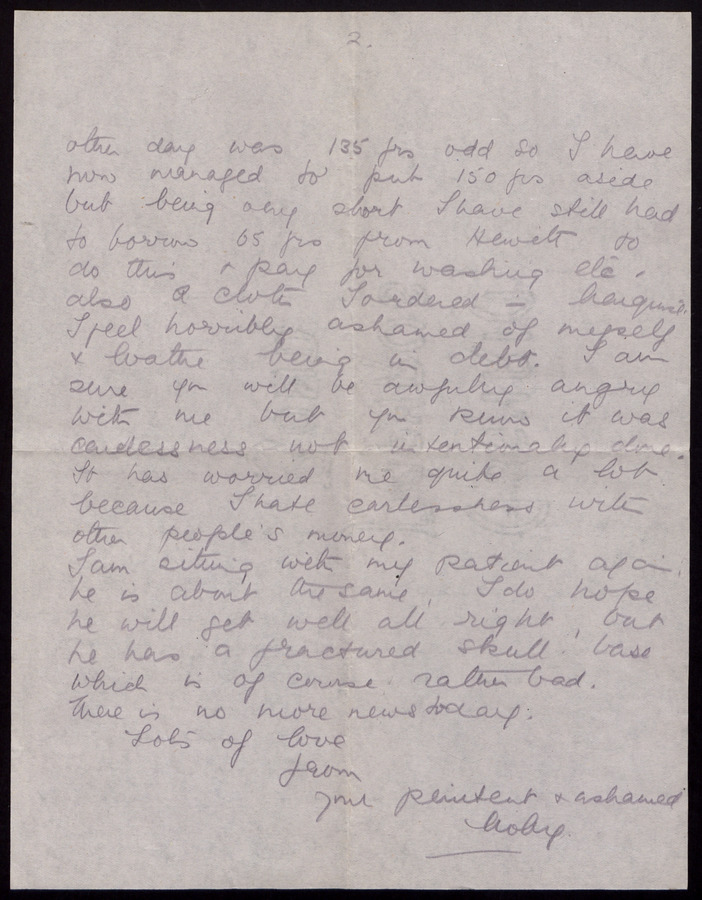 2.
other day was 135 frs odd so I have
now managed to put 150 frs aside
but being very short I have still had
to borrow 65 frs from Hewett to
do this & pay for washing etc.
also a cloth I ordered –
I feel horribly ashamed of myself
& loathe being in debt. I am
sure you will be awfully angry
with me but you know it was
carelessness not intentionally done.
It has worried me quite a lot
because I hate carlessness with
other people's money.
I am sitting with my patient again.
he is about the same, I do hope
he will get well all right, but
he has a fractured skull: base
which is of course rather bad.
There is no more news today.
Lots of love
from
your penitent & ashamed